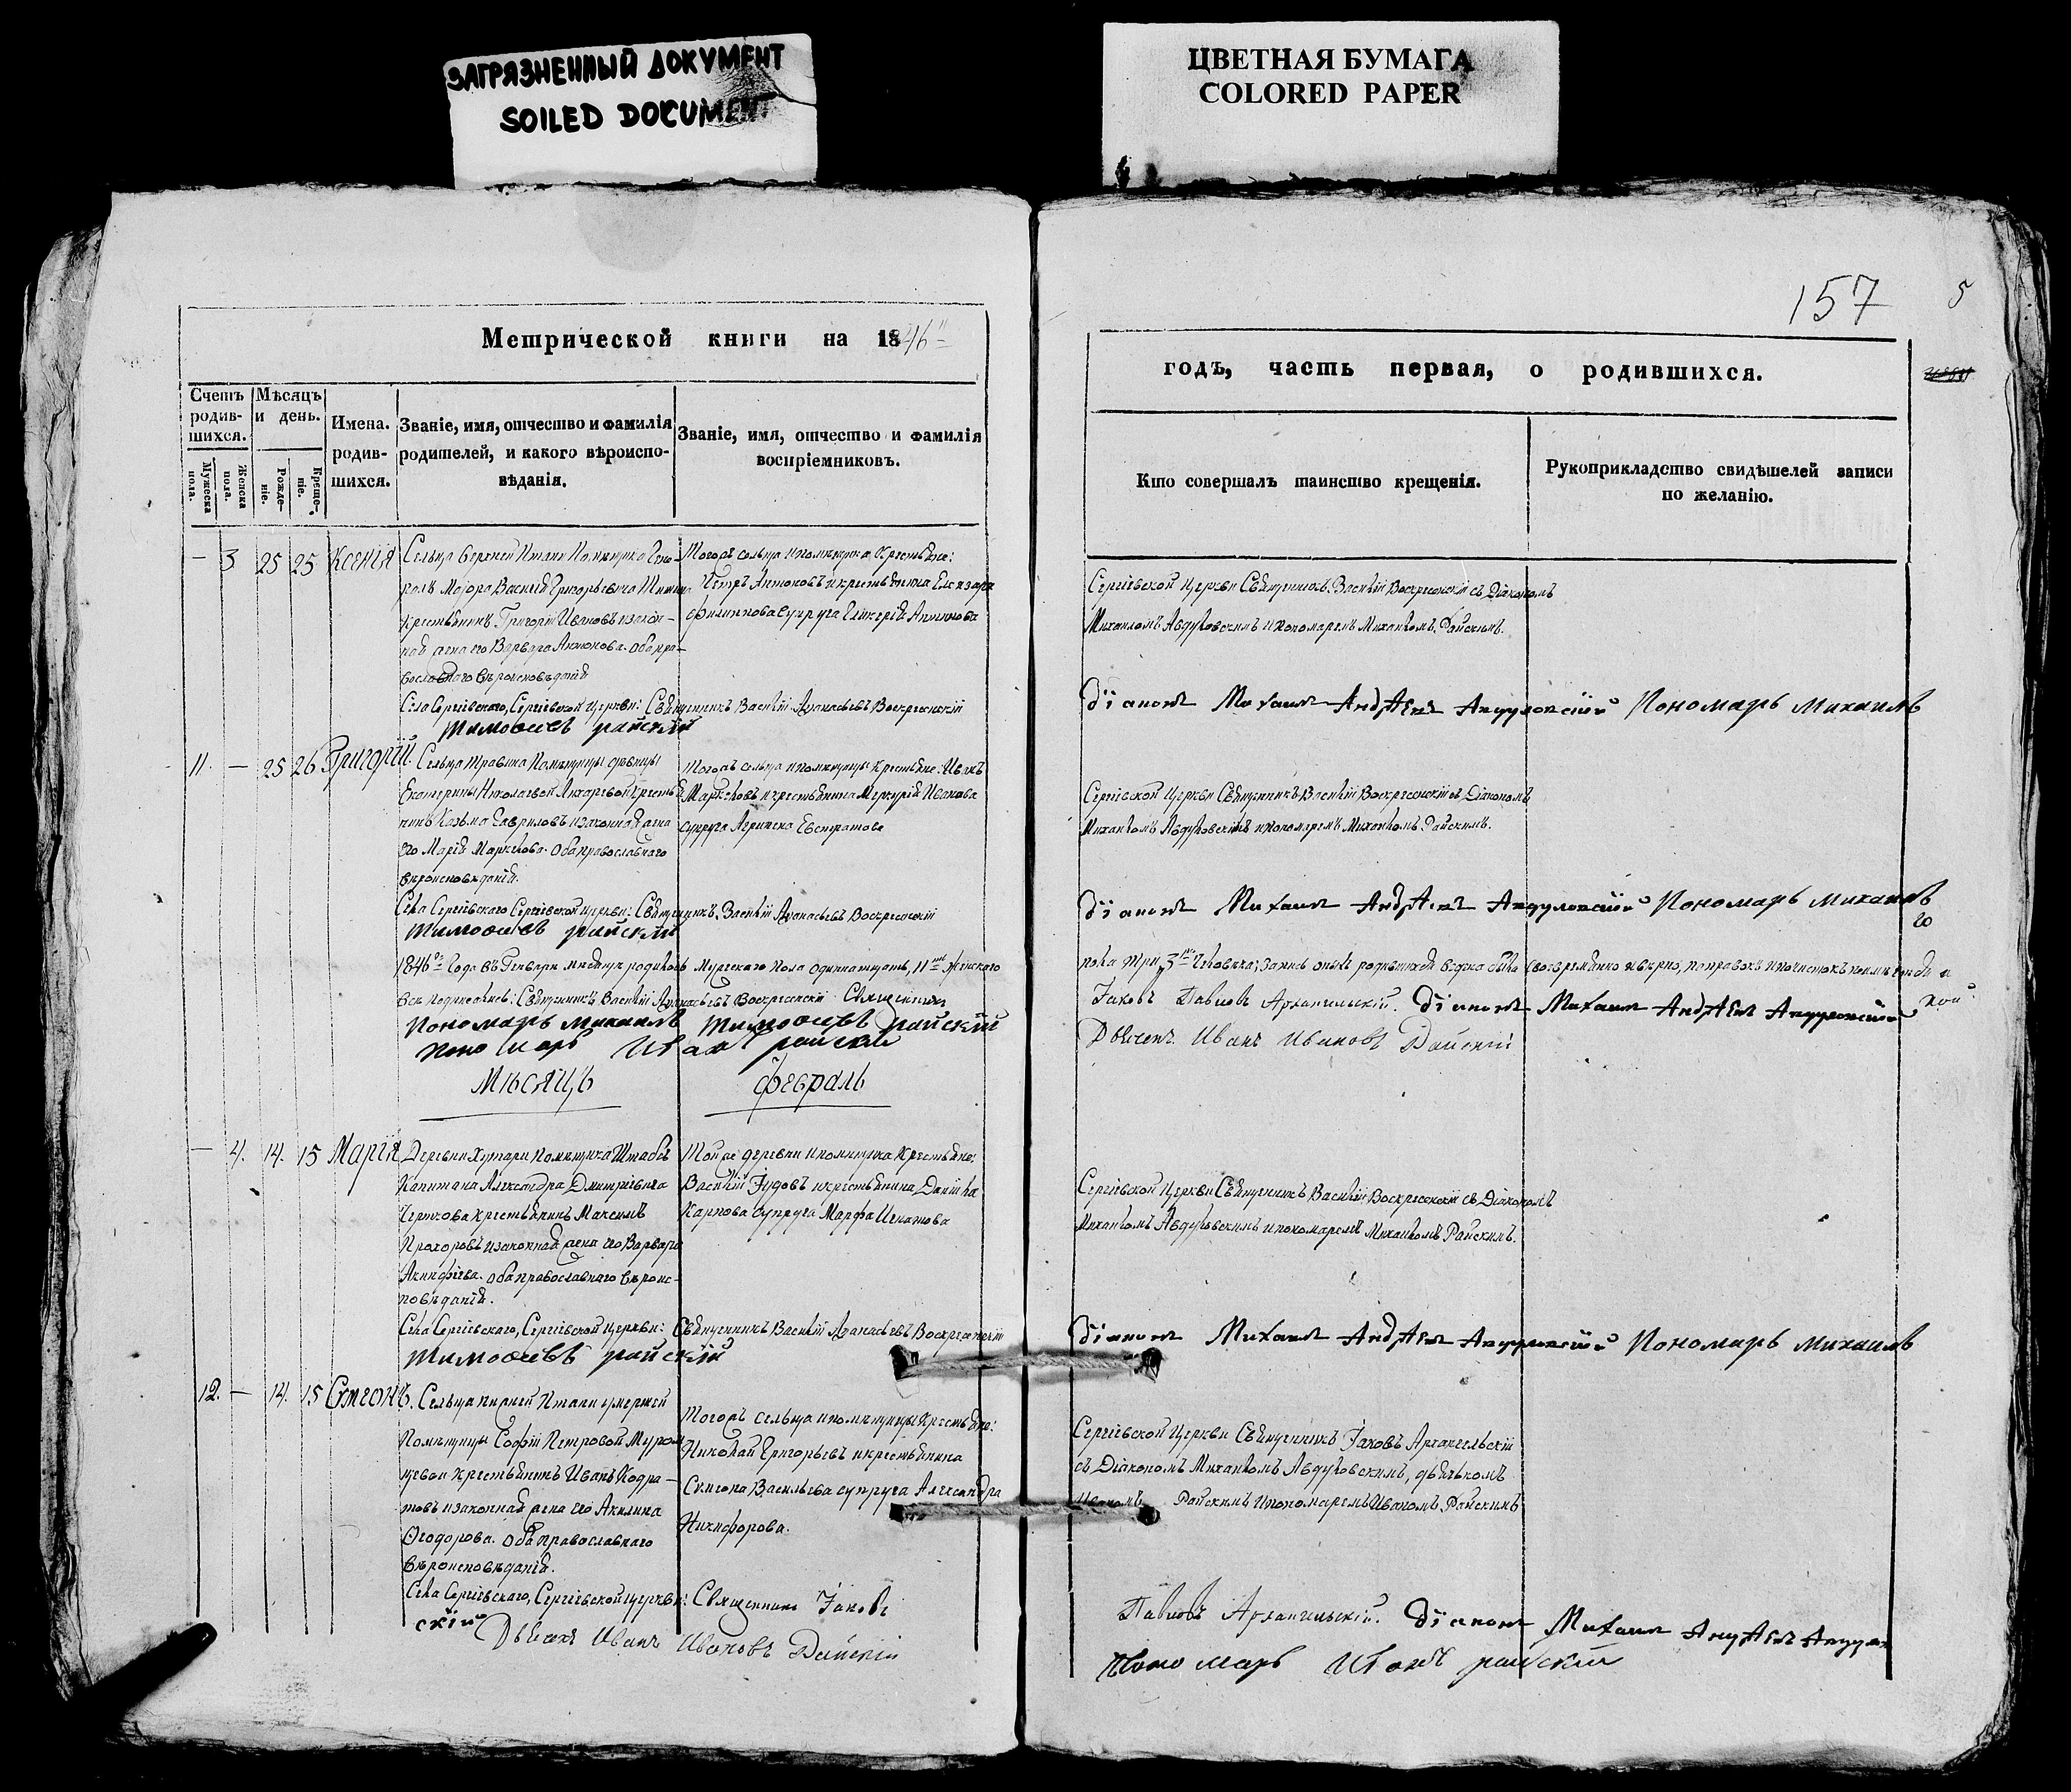 ЗАГРЯЗНЕННЫЙ ДОКУМЕНТ
SOILED DOCUMENT
ЦВЕТНАЯ БУМАГА
COLORED PAPER
157
5
Метрической книги на 1846
годъ, часть первая, о родившихся.
Счетъ родив-шихся.
Мужеска пола.
Женска пола.
Мѣсяцъ и день.
Рожде-ніе.
Креще-ніе.
Имена. родив-шихся.
Званіе, имя, отчество и фамилія
родителей, и какого вѣроиспо-
вѣданія.
Званіе, имя, отчество и фамилія
воспріемниковъ.
Кто совершалъ таинство крещенія.
Рукоприкладство свидѣтелей записи
по желанію.
— 3 25 25 Ксенія
Сельца Верхней Помѣщика Гене-
ралъ Маіора Василія Григорьевича
крестьянинъ Григорій Ивановъ изакон-
ная жена его Варвара Антонова. Оба пра-
вославнаго вѣроисповѣданія
Тогожъ сельца ипомѣщика Крестьяне:
Петръ Антоновъ икрестьянина Елизара
Филиппова супруга Гликерія Антипова
Сергіевской Церкви Священникъ Василій Воскресенскій съ Діакономъ
Михаиломъ Авдуловскимъ ипономаремъ Михаиломъ Райскимъ.
Села Сергіевскаго, Сергіевской Церкви: Священникъ Василій Аѳанасьевъ Воскресенскій
Діаконъ Михаилъ Андреевъ Авдуловскій Пономарь Михаилъ
Тимоѳеевъ райскій
11. — 25 26 Григорій.
Сельца Травина Помѣщицы дѣвицы
Екатерины Николаевой крестья-
нинъ Козьма Гавриловъ изаконная жена
его Марія Маркелова. Оба православнаго
вѣроисповѣданія.
Тогожъ сельца ипомѣщицы Крестьяне: Иванъ
Маркеловъ икрестьянина Меркурія Иванова
супруга Агрипена Евстратова
Сергіевской Церкви Священникъ Василій Воскресенскій съ Діакономъ
Михаиломъ Авдуловскимъ ипономаремъ Михаиломъ Райскимъ.
Села Сергіевскаго Сергіевской церкви: Священникъ Василій Аѳанасьевъ Воскресенскій
Діаконъ Михаилъ Андреевъ Авдуловскій Пономарь Михаилъ
Тимоѳеевъ райскій
1846 Года въ Генваре мѣсяцѣ родилось Мужескаго пола одиннатцать, 11 Женскаго
пола три, 3 Человѣка; Запись оныхъ родившихся ведена была своевременно ивѣрно,
Священникъ Василій Аѳанасьевъ Воскресенскій Священникъ
Іаковъ Павловъ Архангельскій. Діаконъ Михаилъ Андреевъ Авдуловскій
Пономарь Михаилъ Тимоѳеевъ райскій
Дьячекъ Иванъ Ивановъ Райскій
Пономарь Иванъ райскій
Мѣсяцъ Февраль
— 4. 14. 15 Марія
Деревни Хутари Помѣщика Штабсъ
Капитана Александра Дмитріевича
Черткова крестьянинъ Максимъ
Прохоровъ изаконная жена его Варвара
Акинфіева. Оба православнаго вѣроис-
повѣданія.
Тойже деревни ипомѣщика Крестьяне:
Василій Іудовъ икрестьянина Данила
Карпова супруга Марфа Игнатова
Сергіевской Церкви Священникъ Василій Воскресенскій съ Діакономъ
Михаиломъ Авдуловскимъ ипономаремъ Михаиломъ Райскимъ.
Села Сергіевскаго, Сергіевской церкви: Священникъ Василій Аѳанасьевъ Воскресенскій
Діаконъ Михаилъ Андреевъ Авдуловскій Пономарь Михаилъ
Тимоѳеевъ райскій
12. — 14. 15 Сѵмеонъ.
Сельца нижней умершей
Помѣщицы Софіи Петровой Муром-
цевой Крестьянинъ Иванъ Кодра-
товъ изаконная жена его Акилина
Ѳеодорова. Оба православнаго
вѣроисповѣданія.
Тогожъ сельца ипомѣщицы Крестьяне:
Николай Григорьевъ икрестьянина
Сѵмеона Васильева супруга Александра
Никифорова.
Сергіевской Церкви Священникъ Іаковъ Архангельскій
съ Діакономъ Михаиломъ Авдуловскимъ, дьячькомъ
Иваномъ Райскимъ ипономаремъ Иваномъ Райскимъ
Села Сергіевскаго, Сергіевской церкви: Священникъ Іаковъ
Павловъ Архангельскій. Діаконъ Михаилъ Андреевъ Авдулов
скій Дьячекъ Иванъ Ивановъ Райскій
Пономарь Иванъ райскій